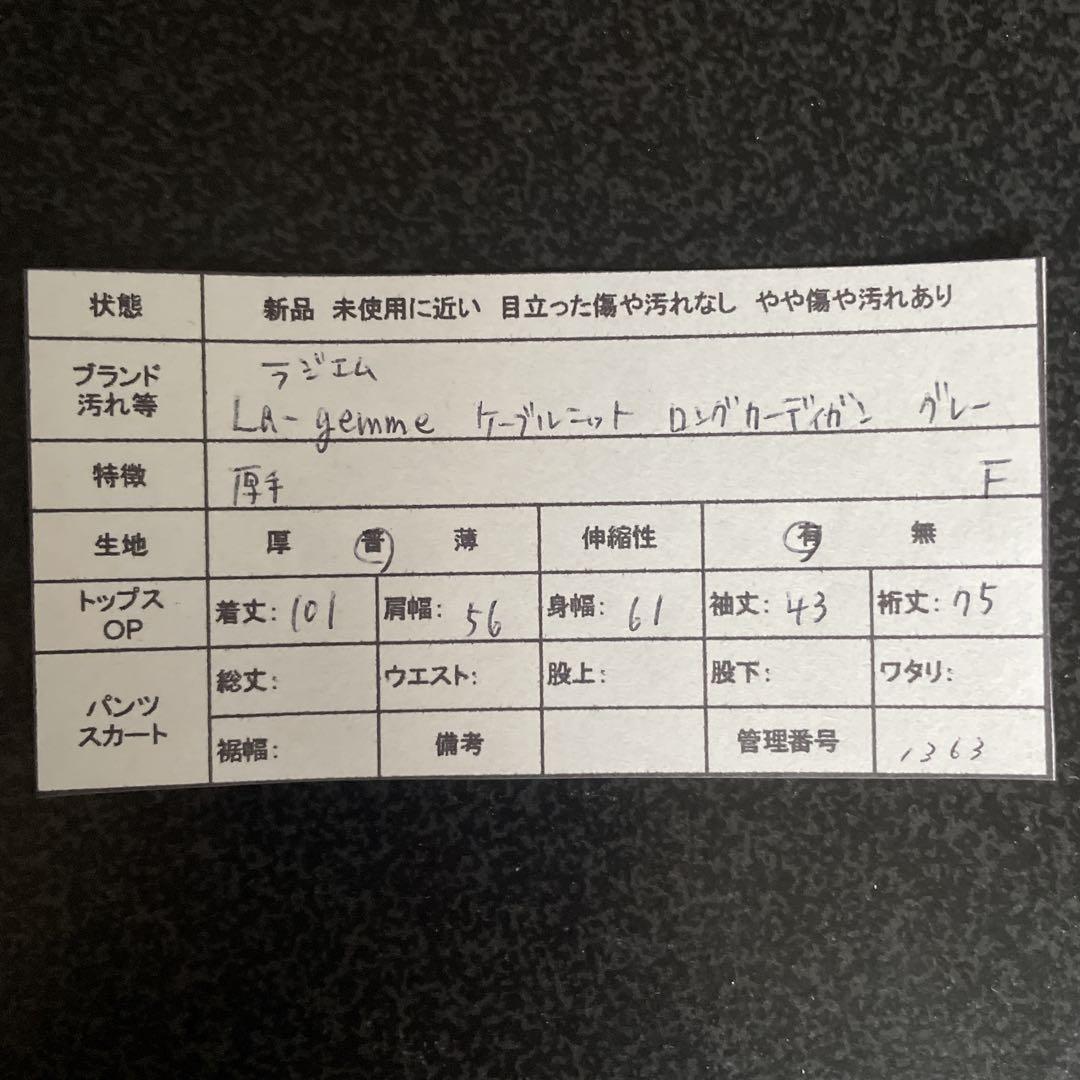 状態 新品 未使用に近い 目立った傷や汚れなし やや傷や汚れあり
ブランド 汚れ等 ラジエム
LA-gemme ケーブルニット ロングカーディガン グレー
特徴 厚手 F
生地 厚 普 薄 伸縮性 有 無
トップス OP 着丈: 101 肩幅: 56 身幅: 61 袖丈: 43 裄丈: 75
パンツ スカート 総丈: ウエスト: 股上: 股下: ワタリ:
裾幅: 備考 管理番号 1363